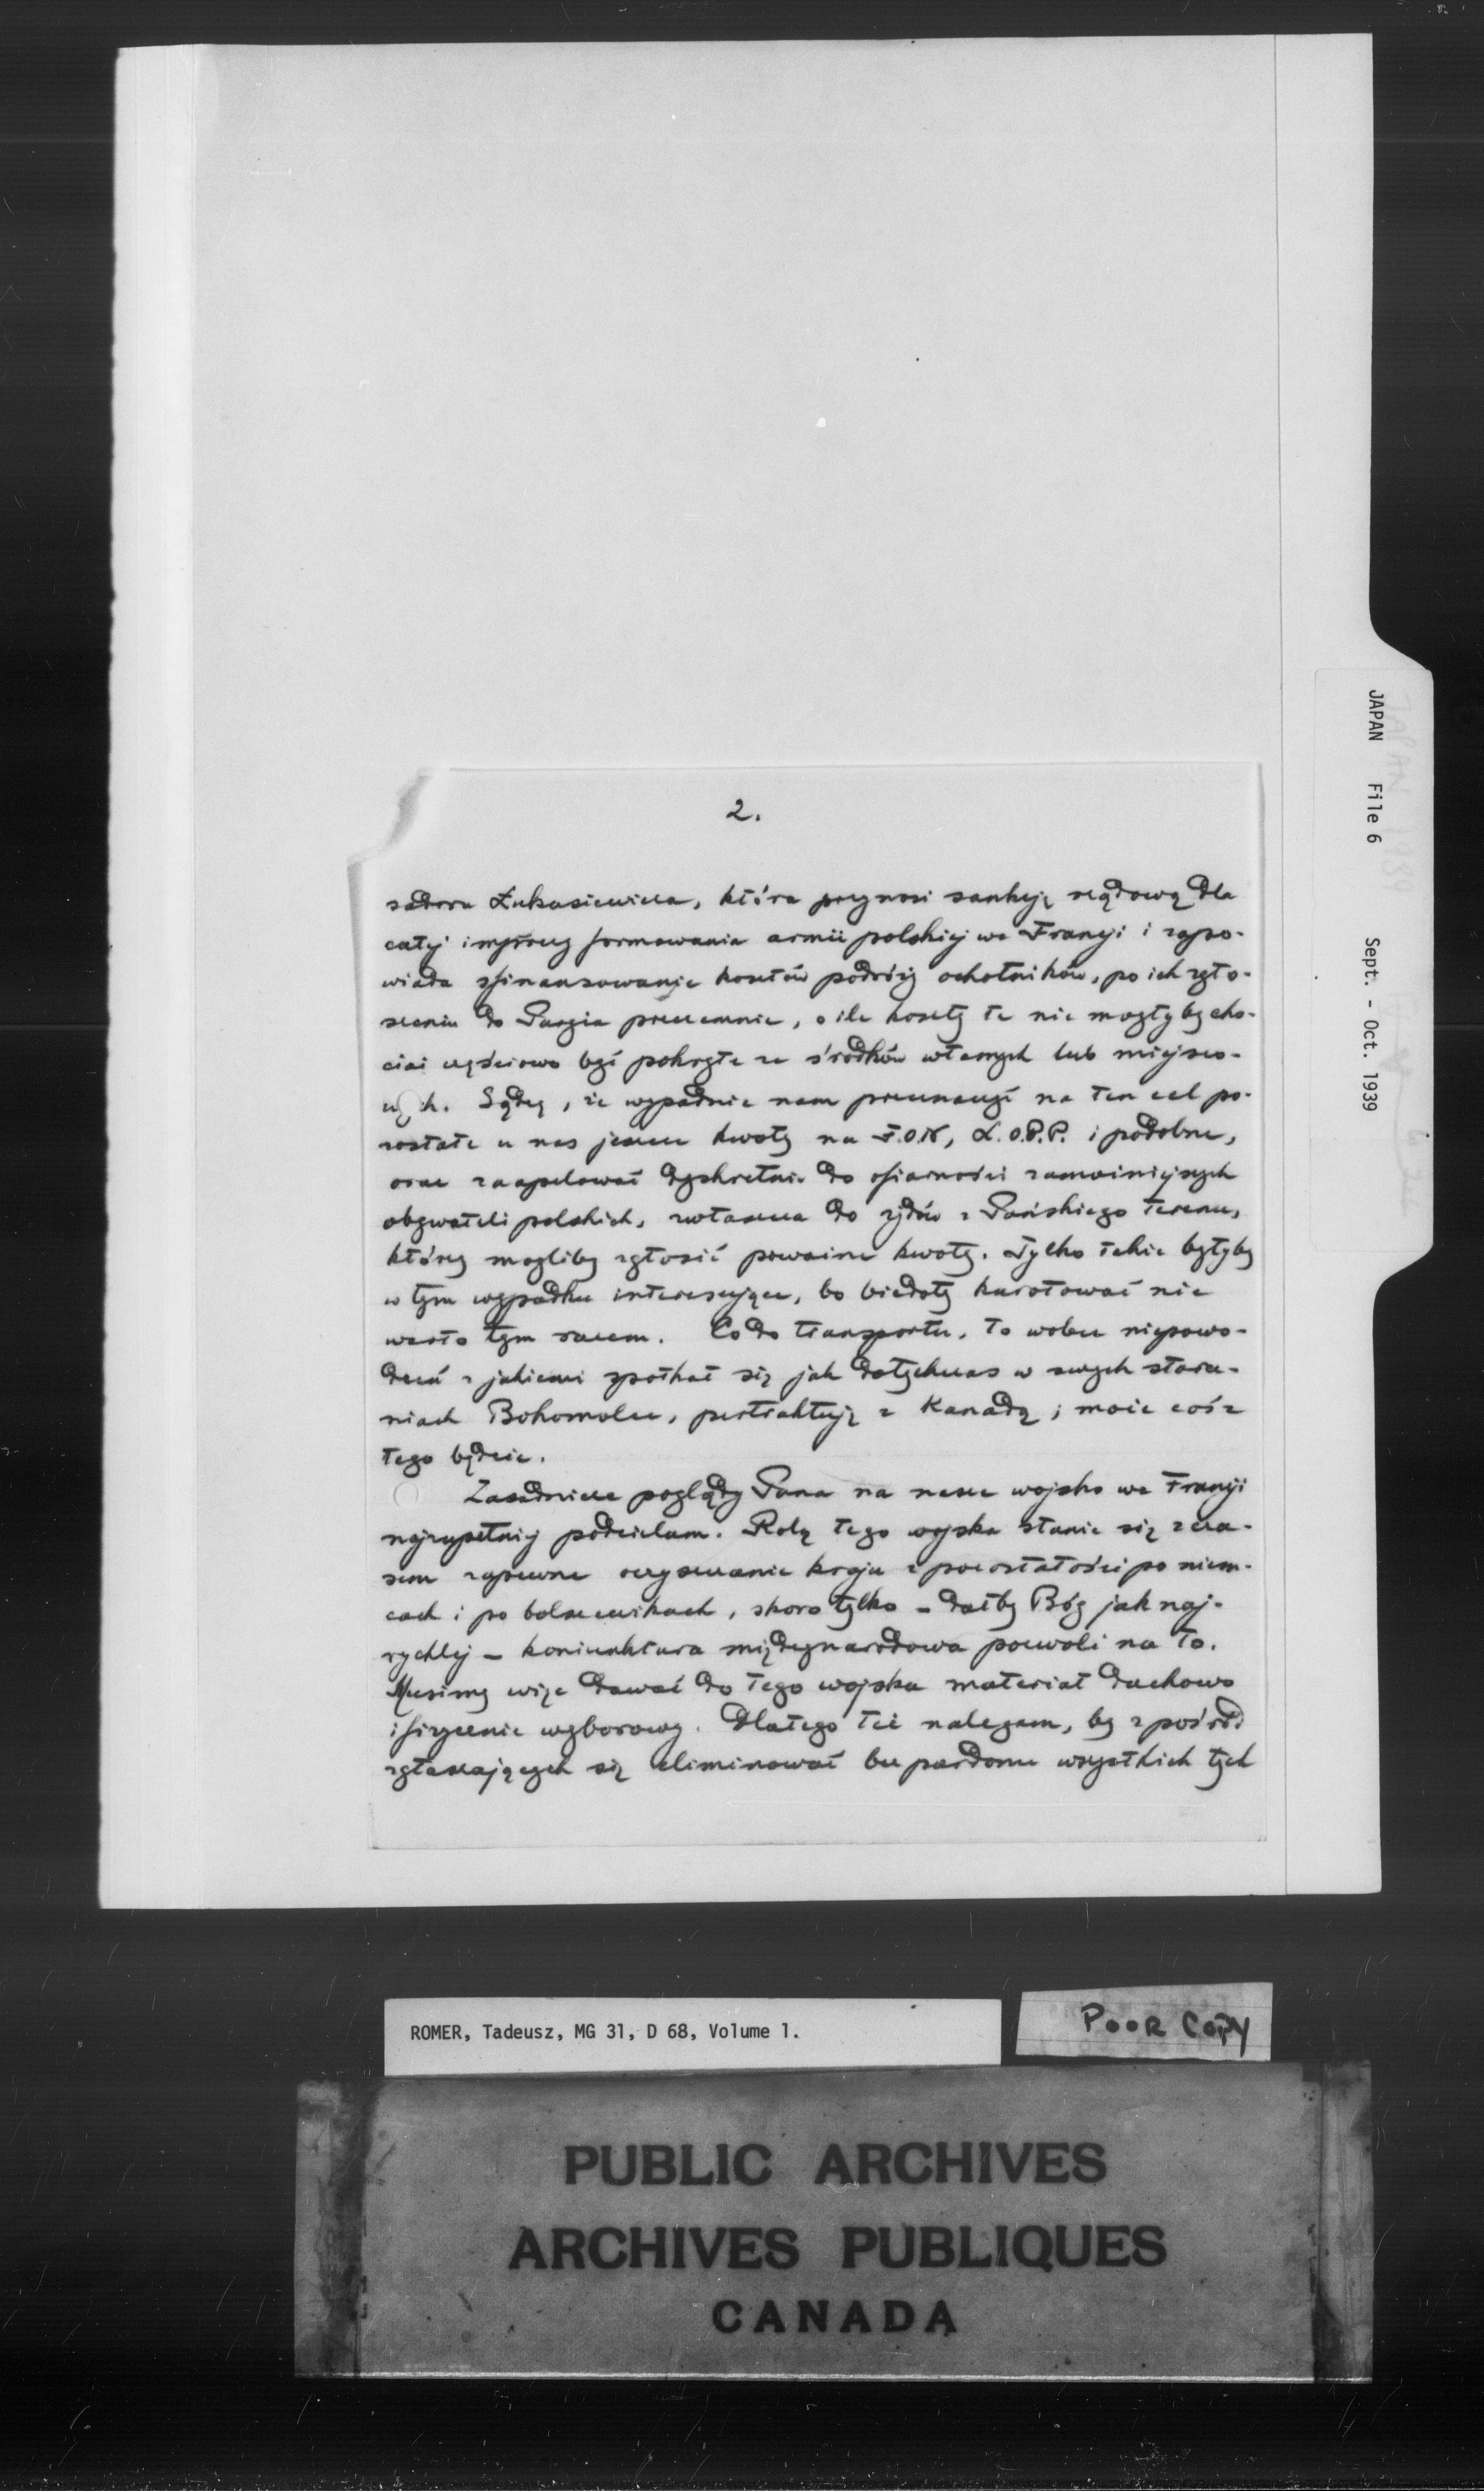 2.
sadora Łukasiewicza, która przynosi sankcję rządową dla
całej imprezy formowania armii polskiej we Francji i zapo-
wiada sfinansowanie kosztów podróży ochotników, po ich zgło-
szeniu do Paryża przezemnie, o ile koszty te nie mogłyby cho-
ciaż częściowo być pokryte ze środków własnych lub miejsco-
wych. Sądzę, że wypadnie nam przeznaczyć na ten cel po-
zostałe u nas jeszcze kwoty na F.O.N, L.O.P.P. i podobne,
oraz zaapelować dyskretnie do ofiarności zamożniejszych
obywateli polskich, zwłaszcza do żydów z Pańskiego terenu,
którzy mogliby zgłosić poważne kwoty. Tylko takie byłyby
w tym wypadku interesujące, bo biedoty kwestować nie
warto tym razem. Co do transportu, to wobec niepowo-
dzeń z jakiemi spotkał się jak dotychczas w swych stara-
niach Bohomolec, pertraktuję z Kanadą; może coś z
tego będzie.
Zasadnicze poglądy Pana na nasze wojsko we Francji
najzupełniej podzielam. Rolą tego wojska stanie się z cza-
sem zapewne oczyszczanie kraju z pozostałości po niem-
cach i po bolszewikach, skoro tylko – dałby Bóg jak naj-
rychlej – koniunktura międzynarodowa pozwoli na to.
Musimy więc dawać do tego wojska materiał duchowo
i fizycznie wyborowy. Dlatego też nalegam, by z pośród
zgłaszających się eliminować bez pardonu wszystkich tych
JAPAN File 6 Sept. - Oct. 1939
ROMER, Tadeusz, MG 31, D 68, Volume 1.
POOR COPY
PUBLIC ARCHIVES
ARCHIVES PUBLIQUES
CANADA